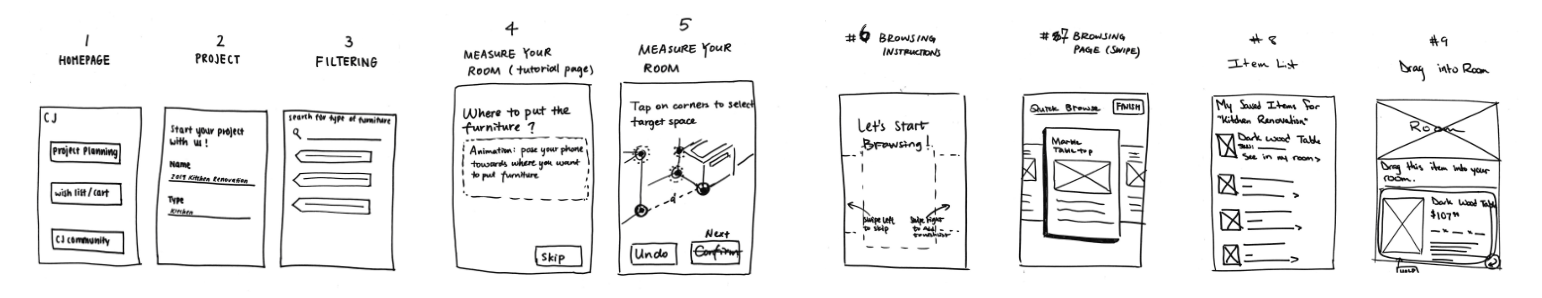 1
HOMEPAGE
CJ
Project Planning
wish list/cart
CJ community
2
PROJECT
Start your project
with us!
Name
2019 Kitchen Renovation
Type
Kitchen
3
FILTERING
search for type of furniture
4
MEASURE YOUR
ROOM (tutorial page)
Where to put the
furniture?
Animation: pose your phone
towards where you want
to put furniture
Skip
5
MEASURE YOUR
ROOM
Tap on corners to select
target space
Undo
Next
Confirm
#6 BROWSING
INSTRUCTIONS
Let's Start
Browsing!
Swipe left
to skip
Swipe Right
to Add
to wishlist
#7 BROWSING
PAGE (SWIPE)
Quick Browse
FINISH
Marble
Table top
#8
Item List
My Saved Items for
"Kitchen Renovation"
Dark Wood Table
See in my room>
#9
Drag into Room
Room
Drag this item into your
room.
Dark Wood Table
$107.99
HOLD